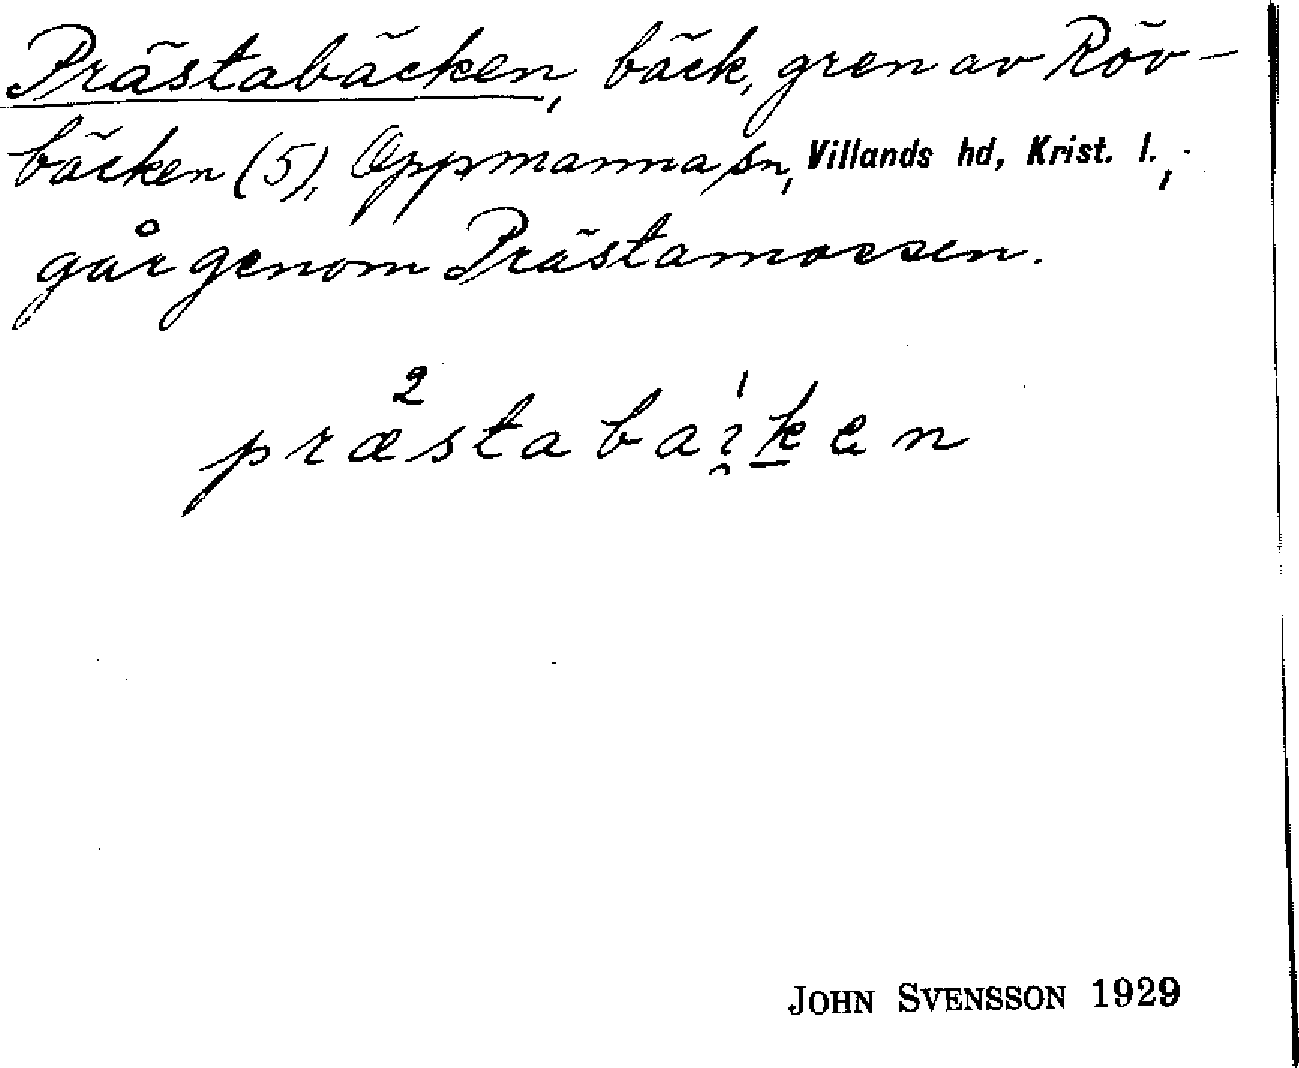 Prästabäcken, bäck, gren av Röv-
bäcken (5), Oppmanna sn, Villands hd, Krist. l.,
går genom Prästamossen.
2 1
præstabai̯ken
JOHN SVENSSON 1929